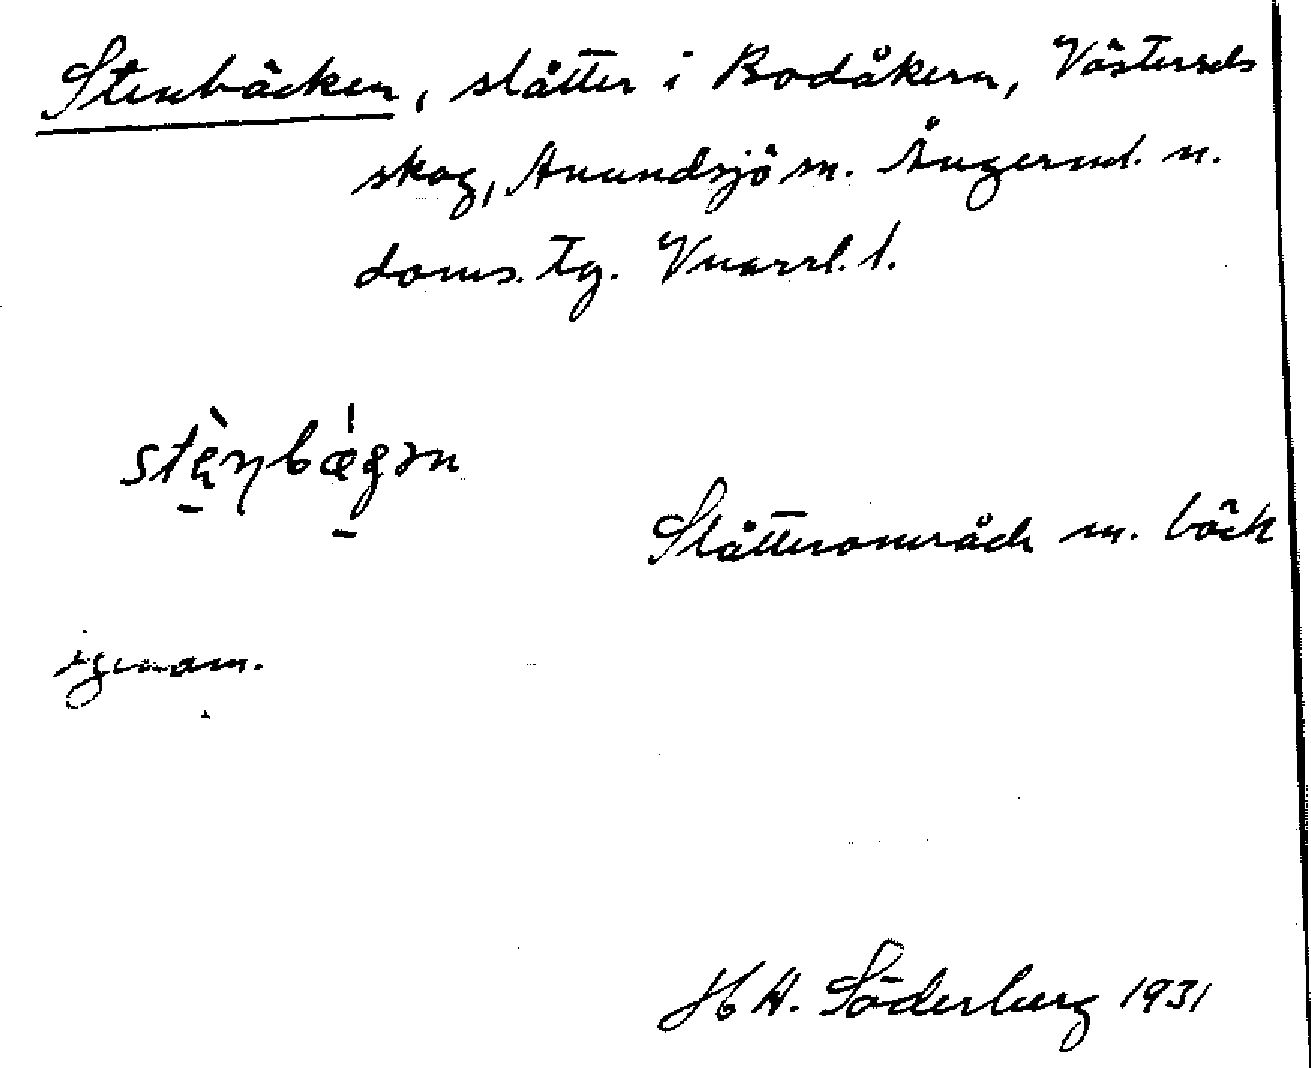 Stenbäcken, slåtter i Bodåkern, Västersels
skog, Anundsjö sn. Ångerml. n.
doms. tg. Vnorrl. l.
Slåtterområde m. bäck
igenom.
H A. Söderberg 1931